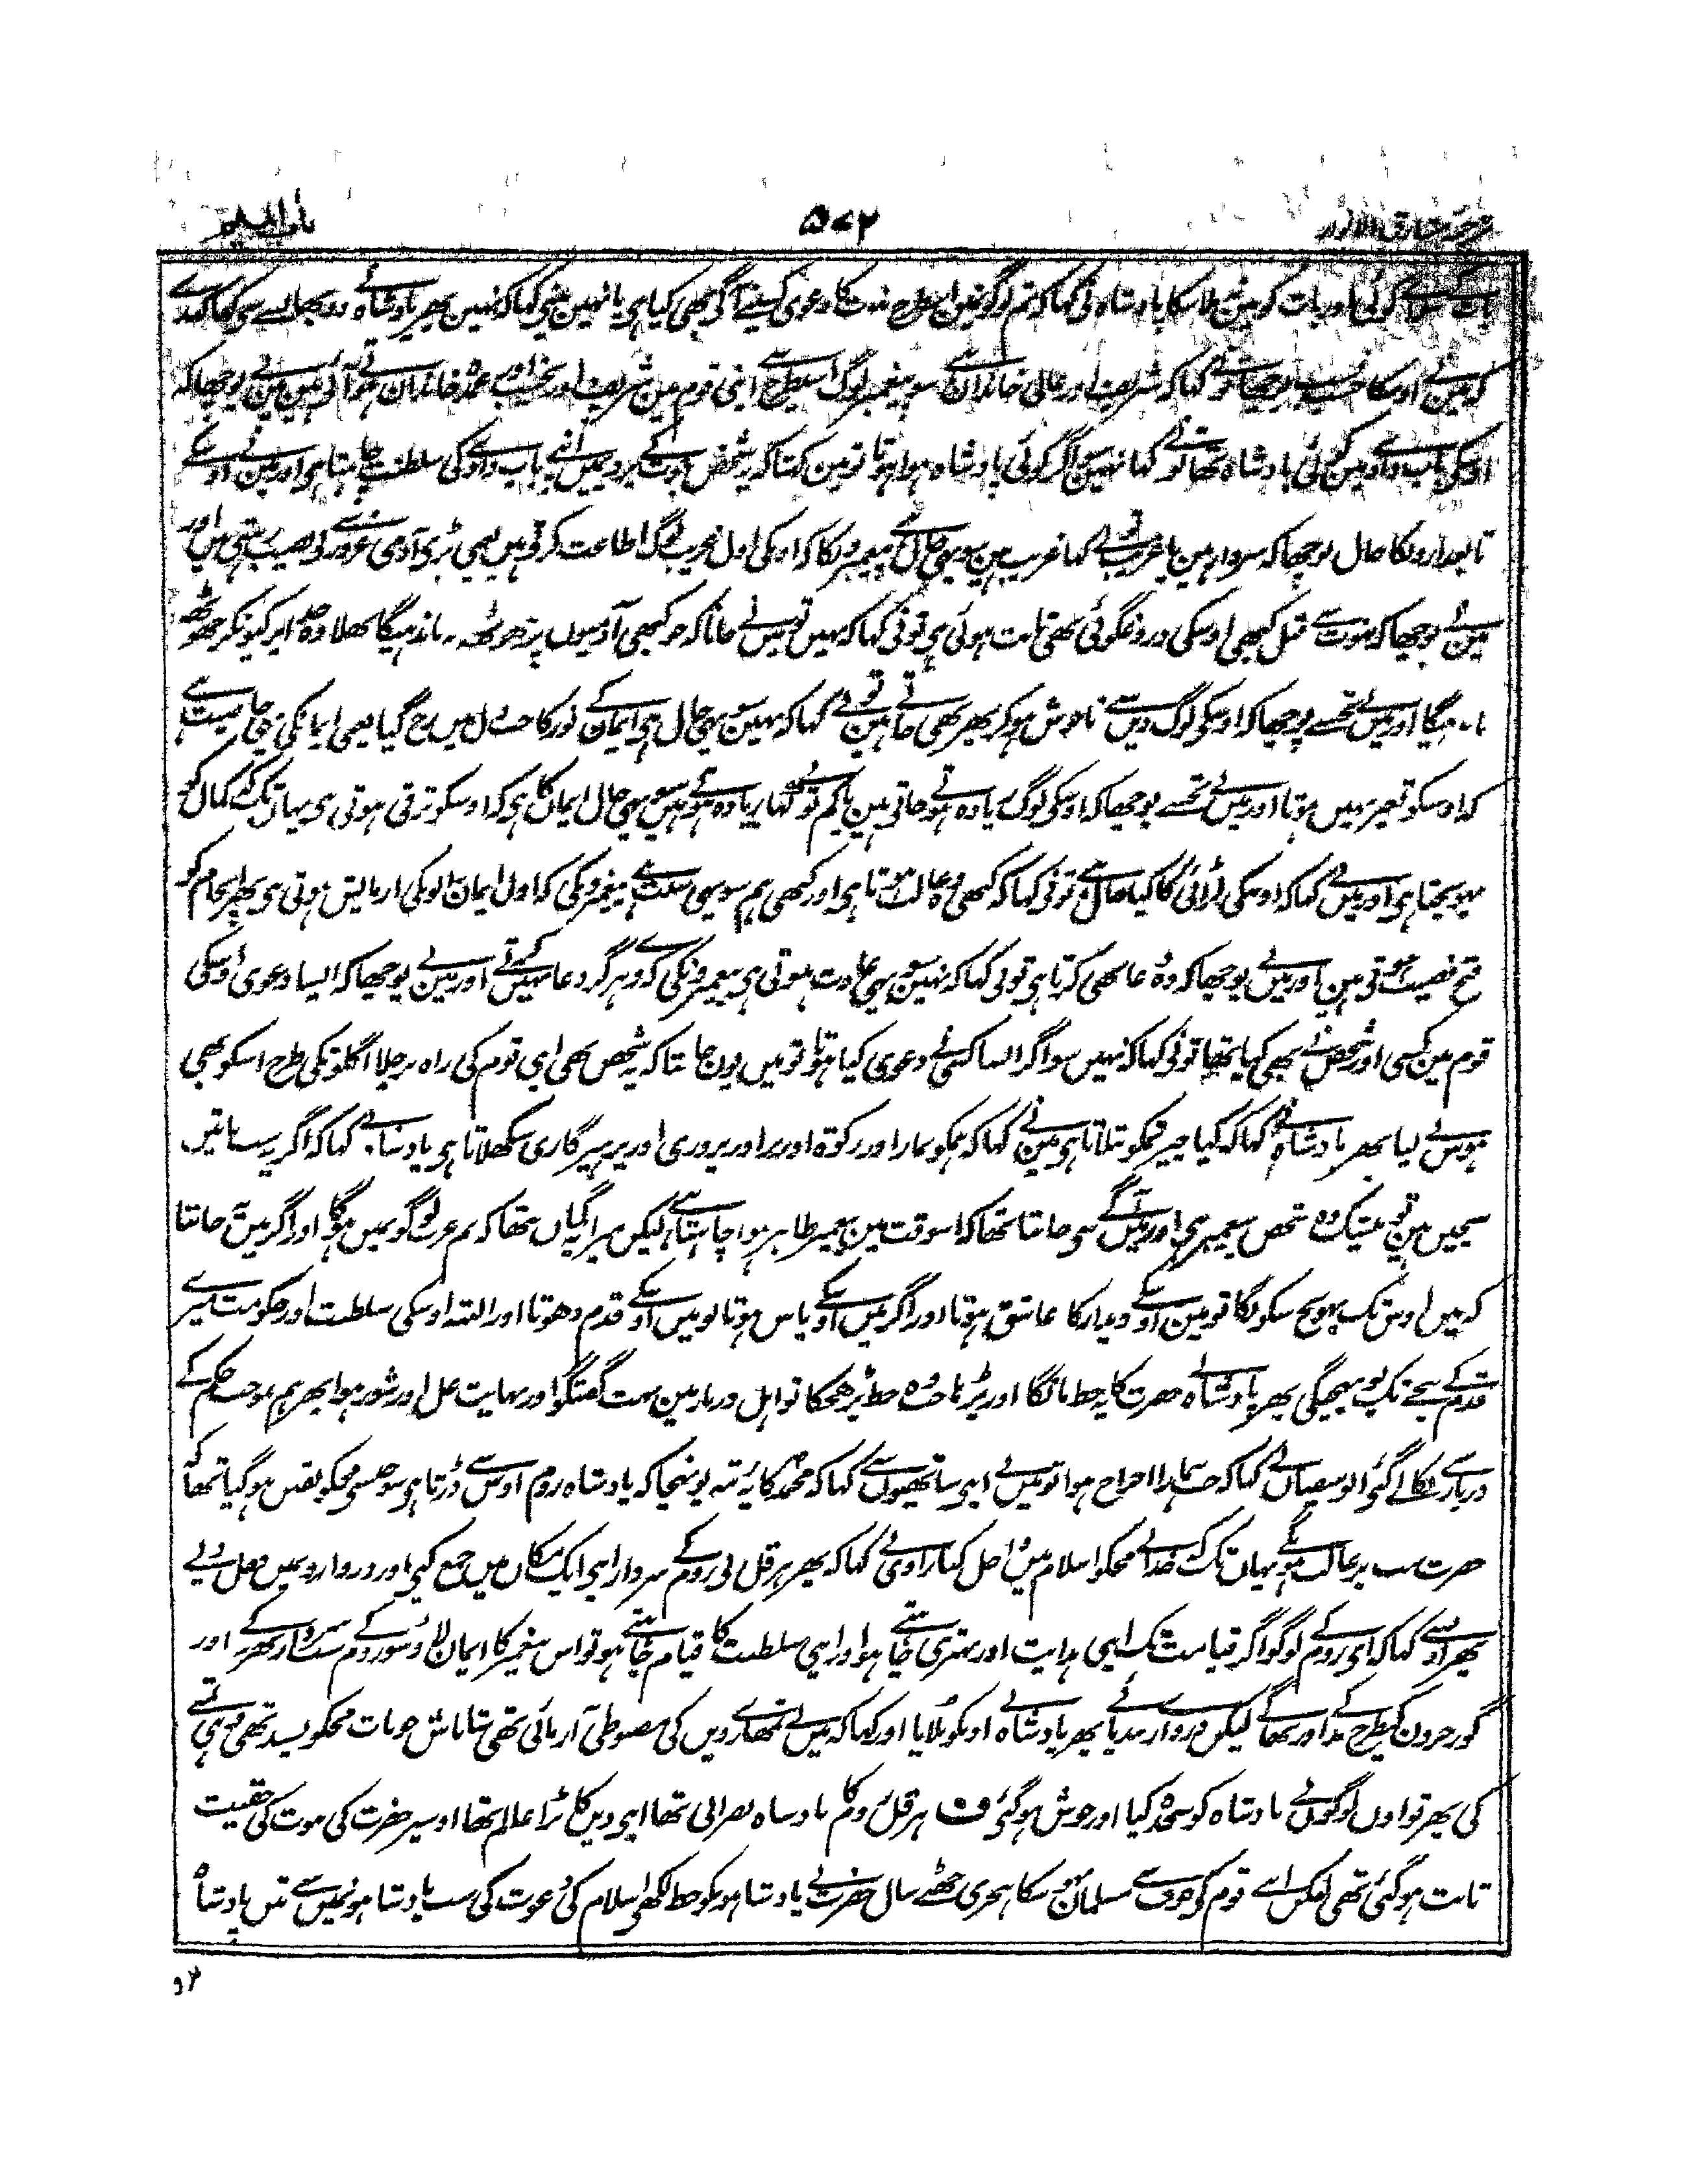 ترجمہ مشارق الانوار ۵۷۲
بات کے سوا کوئی اور بات کو مین نہ ملا سکا پادشاہ نی کہا کہ تم لوگونمین اسطرح نبوت کا دعوی کسینے آگی بھی کیا ہی یا نہین مینی کہا کہ نہین پھر پادشاہ نے
کہ مینے اوسکا حسب پوچھا تو نے کہا کہ شریف اور عالی خاندان ہے سو پیغمبر لوگ اسیطرح اپنی قوم مین شریف اور نجیب عمدہ خاندان ہوتے آئی ہین مین نے پوچھا کہ
اوسکی باپ دادو مین کوئی بادشاہ تھا تو نے کہا نہین اگر کوئی پادشاہ ہوا ہوتا تو مین کہتا کہ یہ شخص نبوت کے پردیمین اپنے باپ دادے کی سلطنت چاہتا ہی اور مین نے اوسکے
تابعدارونکا حال پوچھا کہ سردار ہین یا غریب تو نے کہا غریب ہین سو یہی حال ہے پیغمبرونکا کہ اونکی اول غریب لوگ اطاعت کرتی ہین یعنی بڑی آدمی غرور سے بی نصیب رہتی ہین اور
مین نے پوچھا کہ نبوت سے قبل کبھی اوسکی دروغگوئی بھی ثابت ہوئی ہی تو نی کہا کہ نہین تو مین نے جانا کہ جو کبھی آدمیون پر جھوٹھ نہ باندہیگا بھلا وہ خدا پر کیونکر جھوٹھ
باندہیگا اور مین نے تجھسے پوچھا کہ اوسکی لوگ دین سے ناخوش ہوکر پھر بھی جاتے ہین تو نے کہا کہ نہین سو یہی حال ہی ایمان کے نور کا جب دل مین رچ گیا یعنی ایمانکی یہی خاصیت ہے
کہ اوسکو تغیر نہین ہوتا اور مین نے تجھسے پوچھا کہ اوسکی لوگ زیادہ ہوتے جاتی ہین یا کم تو نے کہا زیادہ ہوتے ہین سو یہی حال ایمان کا ہی کہ اوسکو ترقی ہوتی ہی یہان تک کہ کمال کو
پہونچتا ہی اور مین نے کہا کہ اوسکی لڑائی کا کیا حال ہے تو نی کہا کہ کبھی وہ غالب ہوتا ہی اور کبھی ہم سو یہی سنت ہے پیغمبرونکی کہ اول ایمان والونکی ازمایش ہوتی ہی پھر انجام کو
فتح نصیب ہوتی ہین اور مین نے پوچھا کہ وہ دغا بھی کرتا ہی تو نی کہا کہ نہین سو یہی عادت ہوتی ہی پیغمبرونکی کہ وہ ہرگز دغا نہین کرتے اور مین نے پوچھا کہ ایسا دعوی اوسکی
قوم مین کسی اور شخص نے بھی کیا تھا تو نی کہا کہ نہین سو اگر ایسا کسی نے دعوی کیا ہوتا تو مین یون جانتا کہ یہ شخص بھی اپنی قوم کی راہ پر چلا اگلونکی طرح اسکو بھی
ہوس نے لیا پھر پادشاہ نے کہا کہ کیا چیز تمکو بتلاتا ہی مین نے کہا کہ ہمکو نماز اور زکوۃ اور برادر پروری اور پرہیزگاری سکھلاتا ہی پادشاہ نے کہا کہ اگر یہ سب باتین
سچین ہین تو بیشک وہ شخص پیغمبر ہی اور مین آگے سی جانتا تھا کہ اسوقت مین پیغمبر ظاہر ہوا چاہتا ہے لیکن میرا یہ گمان نتھا کہ تم عرب لوگونمین ہوگا اور اگر مین یہ جانتا
کہ مین اوس تک پہونچ سکونگا تو مین اوسکے دیدار کا عاشق ہوتا اور اگر مین اوسکے پاس ہوتا تو مین اوسکے قدم دھوتا اور البتہ اوسکی سلطنت اور حکومت میرے
قدم کے نیچے تک پہونچیگی پھر پادشاہ نے حضرت کا یہ خط مانگا اور پڑہا جب وہ خط پڑھ چکا تو اہل دربار مین بہت گفتگو اور نہایت غل اور شور ہوا پھر ہم بموجب حکم کے
دربار سے نکالے گئی ابو سفیان نے کہا کہ جب ہمارا اخراج ہوا تو مین نے اپنی ساتھیون سے کہا کہ محمد کا یہ رتبہ پونہچا کہ بادشاہ روم اوس سے ڈرتا ہی سو جبسے مجکو یقین ہوگیا تھا کہ
حضرت سب پر غالب ہونگے یہان تک کہ خدا نے مجکو اسلام مین داخل کیا راوی نے کہا کہ پھر ہرقل نی روم کے سردار اپنی ایک مکان مین جمع کیی اور دروازونمین قفل دیے
پھر اونسے کہا کہ ای روم کے لوگو اگر قیامت تک اپنی ہدایت اور بہتری چاہتے ہو اور اپنی سلطنت کا قیام چاہتے ہو تو اس پیغمبر کا ایمان لاؤ سو روم کے سب سردار بھڑکے اور
گورخرون کیطرح کودے اور بھاگے لیکن دروازے بند پائے پھر پادشاہ نے اونکو بلایا اور کہا کہ مین نے تمھارے دین کی مضبوطی آزمائی تھی شاباش جو بات مجکو پسند تھی تمنے وہی
کی پھر تو اون لوگون نے بادشاہ کو سجدہ کیا اور خوش ہوگئی ف ہرقل روم کا بادشاہ نصرانی تھا اپنی دین کا بڑا عالم تھا اوسپر حضرت کی نبوت کی حقیت
ثابت ہوگئی تھی لیکن اپنے قوم کی خوف سے مسلمان نہو سکا ہجری چھٹے سال حضرت نے پادشاہونکو خط لکھی اسلام کی دعوت کی سب پادشاہونمین سے تین پادشاہ